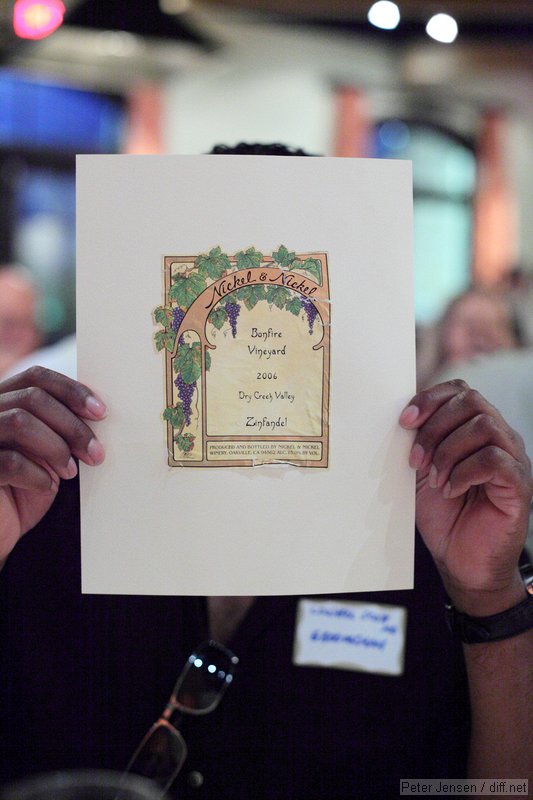 Nickel & Nickel
Bonfire
Vineyard
2006
Dry Creek Valley
Zinfandel
PRODUCED AND BOTTLED BY NICKEL & NICKEL
WINERY, OAKVILLE, CA 94562 ALC. 15.0% BY VOL.
Peter Jensen / diff.net